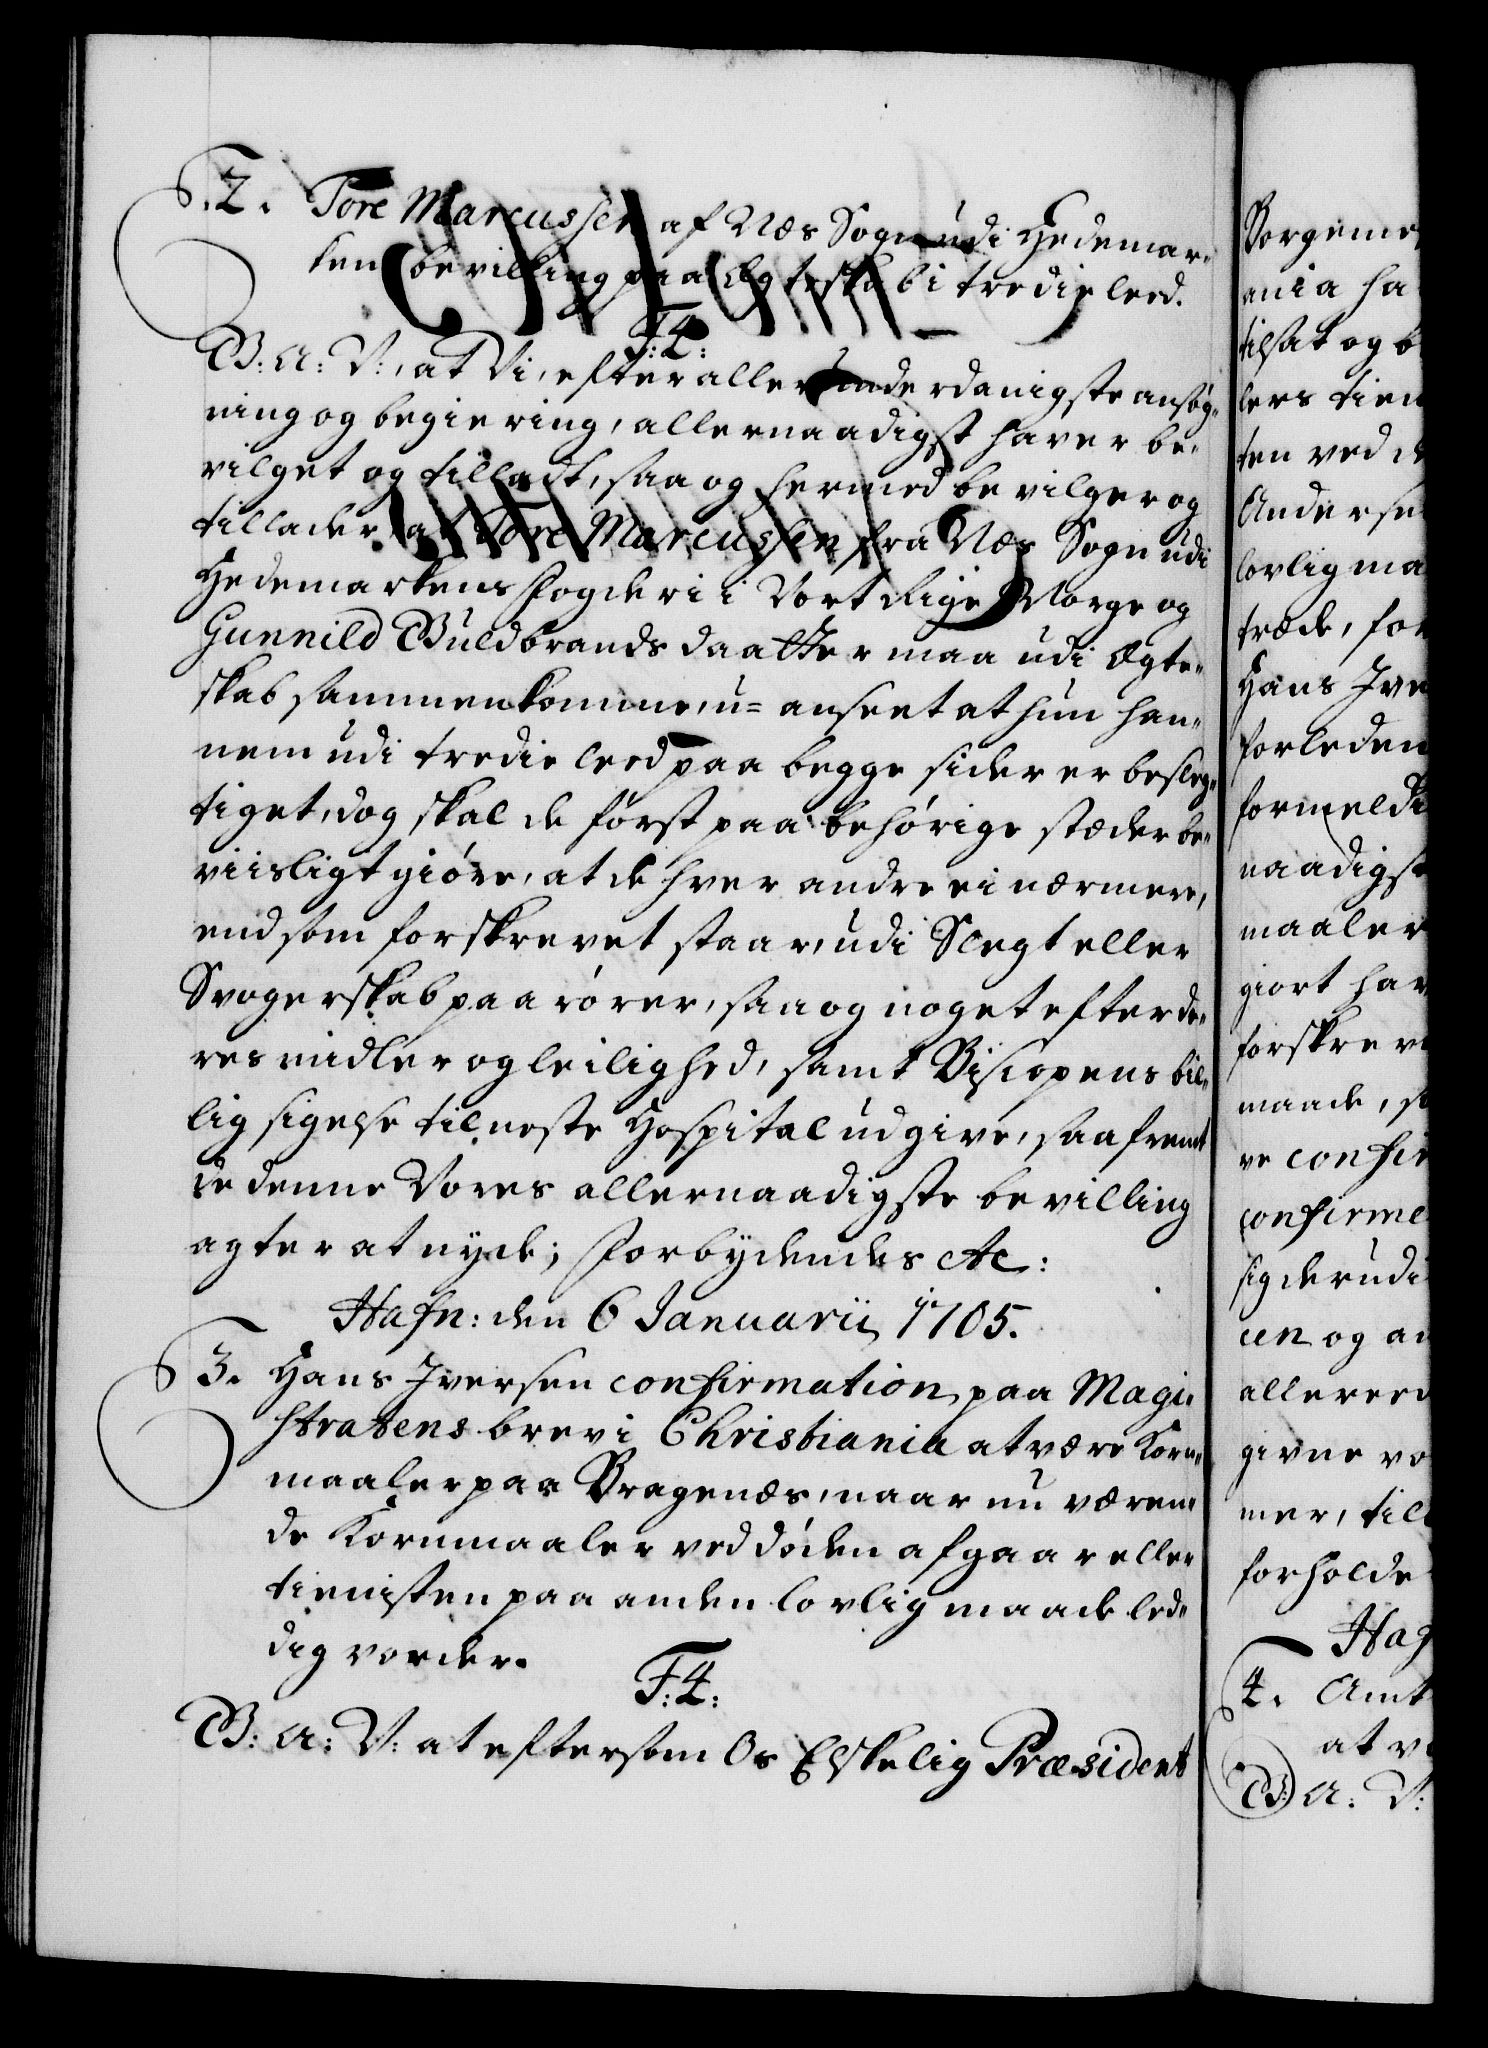 2. Tore Marcussen af Næs Sogn udi Hedemar-
ken bevilling paa Ægteskab i tredie leed.
F:4:
G: A: V:, at Vi, efter allerunderdanigste ansøg-
ning og begiering, allernaadigst haver be-
vilget og tilladt, saa og hermed bevilger og
tillader, at Tore Marcussen fra Næs Sogn udi
Hedemarkens fogderi i Vort Rige Norge og
Gunnild Guldbrands daatter maa udi Ægte-
skab sammenkomme, u= anseet at hun han-
nem udi tredie leed paa begge sider er besleg-
tiget, dog skal de først paa behørige stæder be-
viisligt giøre, at de hver andre ei nærmere,
end som forskrevet staar, udi Slegt eller
Svogerskab paarører, saa og noget efter de-
res midler og leilighed, samt Biscopens bil-
lig sigelse til neste Hospital udgive, saafremt
de denne Vores allernaadigste bevilling
agter at nyde; forbydendes etc:
Hafn: den 6 Januarii 1705.
3. Hans Iversen confirmation paa Magi-
stratens brev i Christiania at være Korn-
maaler paa Bragenæs, naar nu væren-
de Kornmaaler ved døden afgaar eller
tienisten paa anden lovlig maade led-
dig vorder.
F:4:
G: A: V: at eftersom Os Elskelig Præsident
Borgeme
ania ha
tilsat og b
lers tien
ten ved d
Anderse
lovlig ma
træde, for
Hans Ive
forleden
formeldt
naadigst
maaler
giort har
forskrev
maade, s
ve confir
confirme
sig derudi
cen og an
allereed
givne vo
mer, till
forholde
Haf
4. Amt
at v
G: A: V: